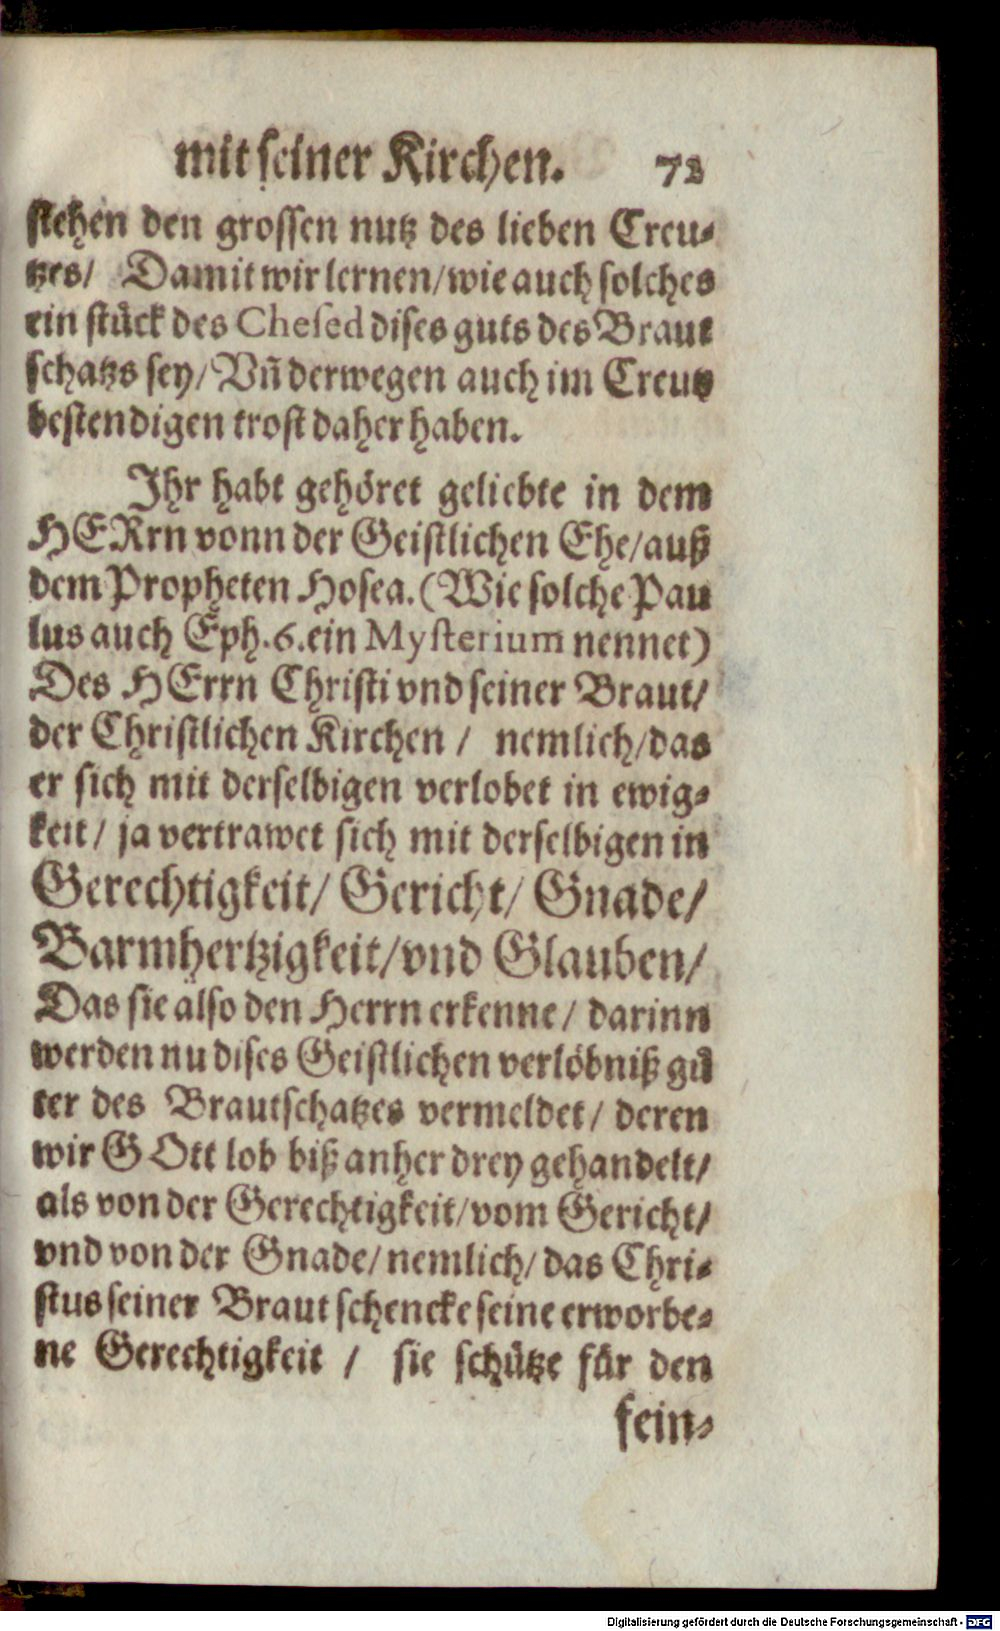 mit seiner Kirchen. 72
stehen den grossen nutz des lieben Creu-
tzes/ Damit wir lernen/wie auch solches
ein stuͤck des Chesed dises guts des Braut
schatzs sey/Vñ derwegen auch im Creutz
bestendigen trost daher haben.
Ihr habt gehoͤret geliebte in dem
HERrn vonn der Geistlichen Ehe/auß
dem Propheten Hosea.(Wie solche Pau
lus auch Eph.6.ein Mysterium nennet)
Des HErrn Christi vnd seiner Braut/
der Christlichen Kirchen / nemlich/das
er sich mit derselbigen verlobet in ewig-
keit/ ja vertrawet sich mit derselbigen in
Gerechtigkeit/ Gericht/ Gnade/
Barmhertzigkeit/vnd Glauben/
Das sie also den Herrn erkenne/ darinn
werden nu dises Geistlichen verloͤbniß guͤ
ter des Brautschatzes vermeldet/ deren
wir GOtt lob biß anher drey gehandelt/
als von der Gerechtigkeit/vom Gericht/
vnd von der Gnade/nemlich/das Chri-
stus seiner Braut schencke seine erworbe-
ne Gerechtigkeit / sie schuͤtze fuͤr den
fein-
Digitalisierung gefördert durch die Deutsche Forschungsgemeinschaft - DFG